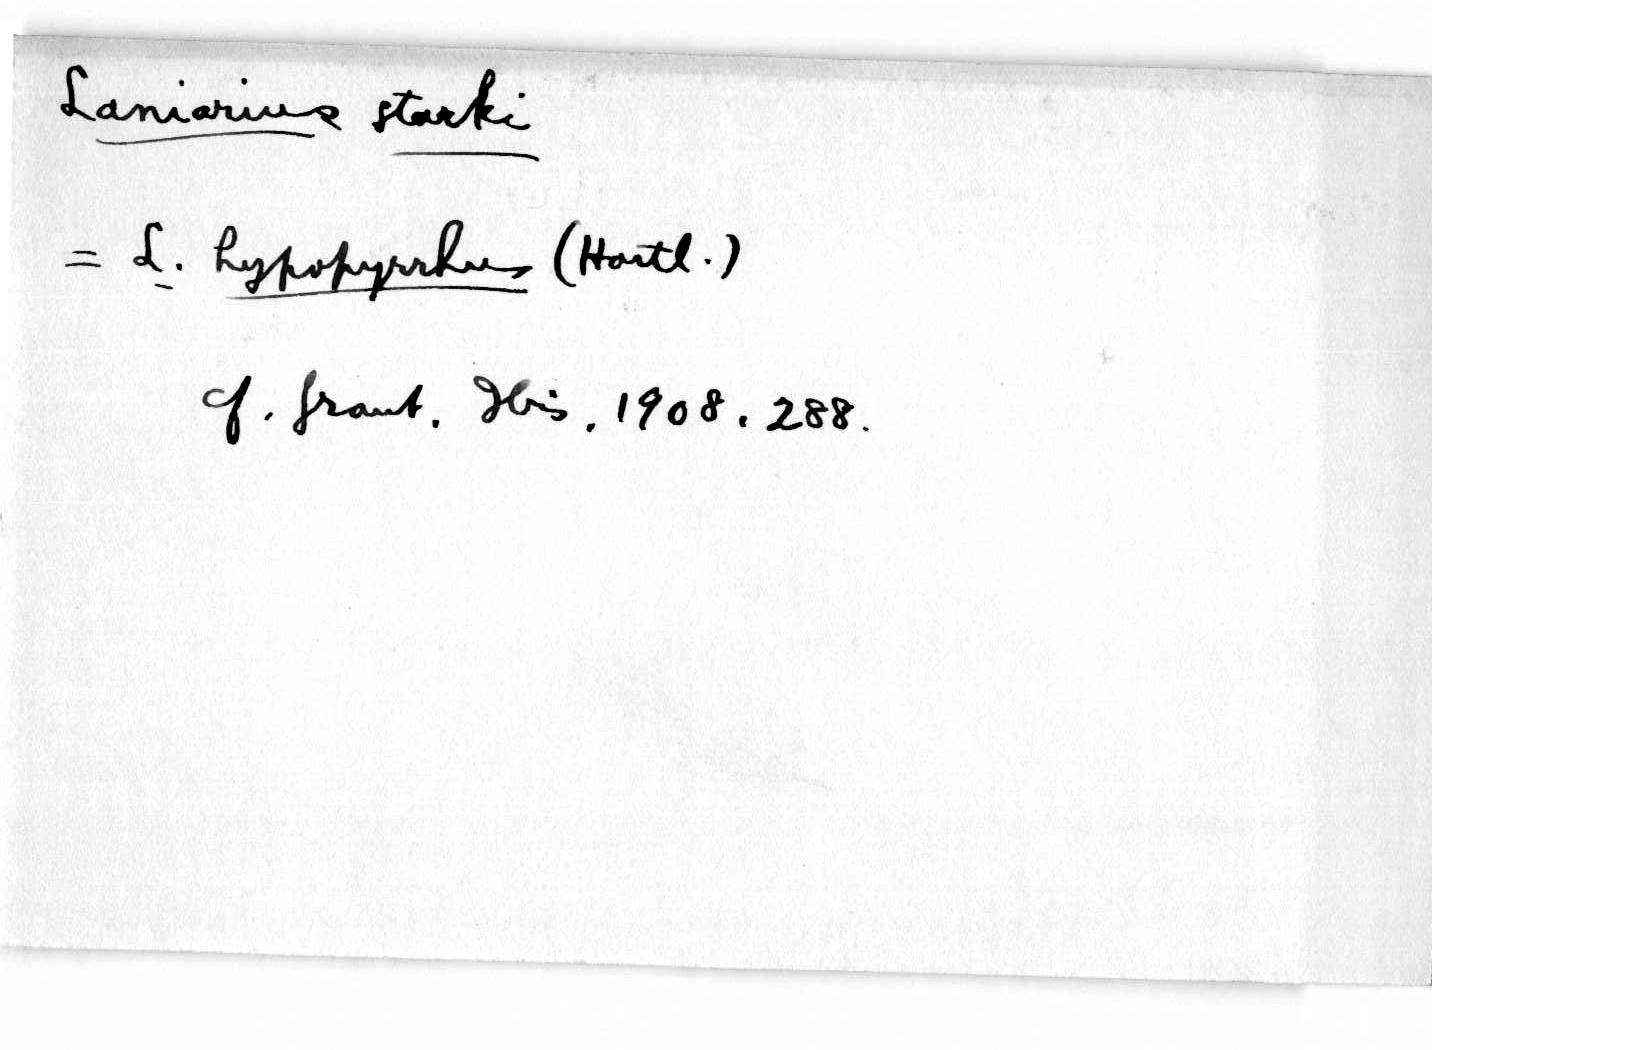 Laniarius starki
= L. hypopyrrhus (Hartl.)
cf. Grant. Ibis, 1908. 288.